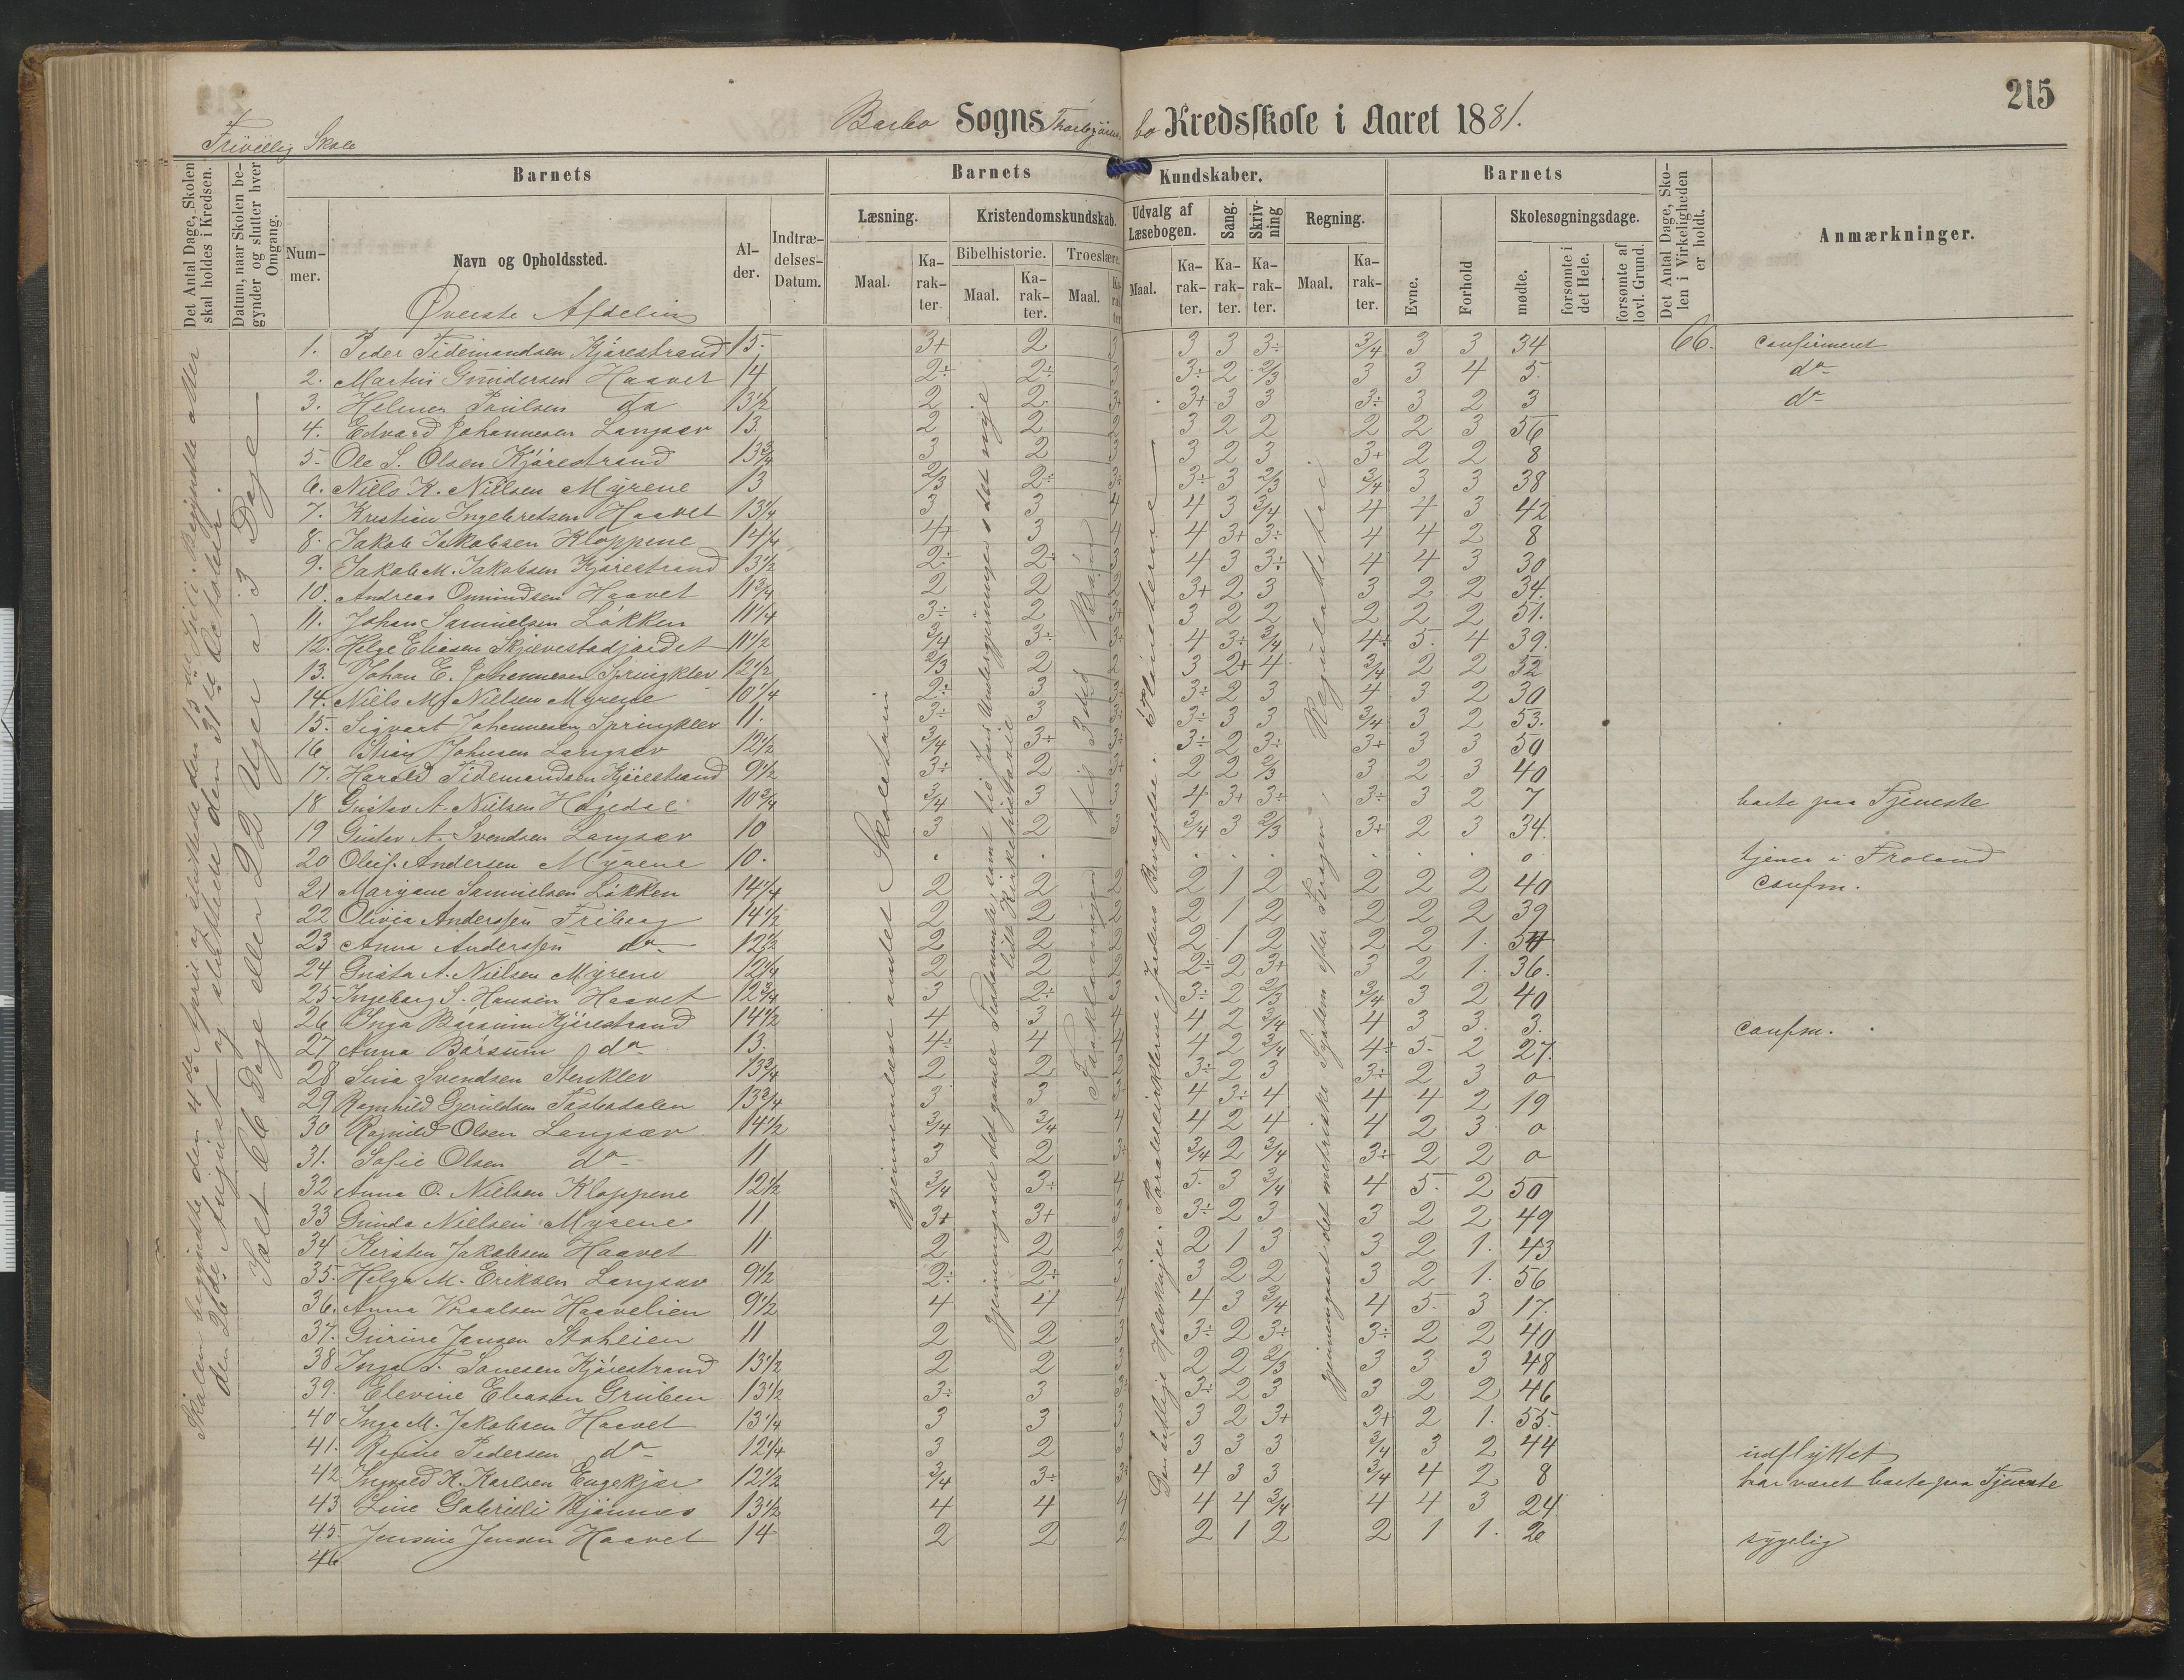 215
Barbo Sogns Thorbjørnsbo Kredsskole i Aaret 1881.
Frivillig Skole
Det Antal Dage, Skolen skal holdes i Kredsen.
Datum, naar Skolen begynder og slutter hver Omgang.
Barnets
Nummer.
Navn og Opholdssted.
Alder.
Indtrædelses-Datum.
Barnets Kundskaber.
Læsning.
Maal.
Karakter.
Kristendomskundskab.
Bibelhistorie.
Maal.
Karakter.
Troeslære.
Maal.
Karakter
Udvalg af Læsebogen.
Maal.
Karakter.
Sang.
Karakter.
Skrivning
Karakter.
Regning.
Maal.
Karakter.
Barnets
Evne.
Forhold
Skolesøgningsdage.
mødte.
forsømte i det Hele.
forsømte af lovl. Grund.
Det Antal Dage, Skolen i Virkeligheden er holdt.
Anmærkninger.
Øverste Afdeling
Skolen begyndte den 4de April og sluttede den 13de Juli. Begyndte atter
den 26de August og sluttede den 31te Oktober.
Ialt 66 Dage eller 22 Uger a 3 Dage
gjennemlæst andet Skoletrin
gjennemgaaet det gamle Testamente, samt tio Jesu Undergjerninger i det nye
lidt Kirkehistorie
Forklaringen til 3die
Den sidlige Halvkugle. Paralleleirklerne. Jordens Bevægelse. Planeterne
gjennemgaaet det metriske System efter Forøgen. Regula de tri.
1. Peder Tidemandsen Kjørestrand 15. 3+ 2 3 3 3 3÷ 3/4 3 3 34 66. confirmeret
2. Martin Gundersen Haavet 14 2÷ 2÷ 3 3÷ 2 2/3 3 3 4 5. do
3. Helmer Paulsen do 13 1/2 2 2 3+ 3+ 3 3 3÷ 3 2 3 do
4. Edvard Johannesen Langsæv 13 2 2 2 3 2 2 2 2 3 56
5. Ole S. Olsen Kjørestrand 13 3/4 3 2 3 3 2 3 3+ 2 2 8
6. Niels K. Nielsen Myrene 13 2/3 2÷ 3÷ 3÷ 3 2/3 3/4 3 3 38
7. Kristian Ingebretsen Haavet 13 1/4 3 3 4 4 3 3/4 4 4 3 42
8. Jakob Jakobsen Kloppene 14 1/4 4+ 3 4 4 3+ 3÷ 4 4 2 8
9. Jakob M. Jakobsen Kjørestrand 13 1/2 2÷ 2÷ 3 4 3 3÷ 4 4 3 30
10. Andreas Omundsen Haavet 11 3/4 2 2 2 3+ 2 3 3 2 2 34.
11. Johan Samuelsen Løkken 11 1/4 3÷ 2 3+ 3 2 2 2 2 2 51.
12. Helge Eliasen Skjævestadjordet 11 1/2 3/4 3÷ 3÷ 4 3÷ 3/4 4÷ 5. 4 39.
13. Johan E. Johannesen Springklev 12 1/2 2/3 2 3 3 2+ 4 3/4 2 2 52
14. Niels M. Nielsen Myrene 10 1/4 2÷ 3 3÷ 3÷ 2 3 4 3 2 30
15. Sigvart Johannesen Springklev 11. 3÷ 3 3÷ 3÷ 3 3 3/4 3 2 53.
16 Stian Johnsen Langsæv 12 1/2 3/4 3÷ 3÷ 3÷ 2 3÷ 3+ 3 3 50
17. Harald Tidemandsen Kjørestrand 9 1/2 3÷ 2 3+ 2 2 2/3 3 2 3 40
18 Gustav A. Nielsen Høgedal 10 3/4 3/4 3 3 4 3+ 3÷ 3÷ 3 2 7 borte paa Tjeneste
19 Gustav A. Svendsen Langsæv 10 3 2 3 3/4 3 2/3 3+ 2 3 34.
20 Oluf Andersen Myrene 10. 0 tjener i Froland
21 Maryane Samuelsen Løkken 14 1/4 2 2 2 2 1 2 2 2 2 40 confm.
22 Olivia Anderssen Friberg 14 1/2 2 2 2 2 1 2 2 2 2 39
23 Anna Anderssen do 12 1/2 2 2 2 2 1 2 2 2 1. 54
24 Gusta A. Nielsen Myrene 12 1/4 2 2 2 2÷ 2 3+ 3 2 1. 36.
25. Ingeborg S. Hansen Haavet 12 3/4 3 2÷ 3 3÷ 2 2/3 3/4 3 2 40
26 Inga Børsum Kjørestrand 14 1/2 4 3 4 4 2 3/4 4 3 3. 3. confm.
27 Anna Børsum do 13. 4÷ 4 4 4 2 3/4 4÷ 5. 2 27.
28 Sina Svendsen Stenklev 13 3/4 2 2 2 3÷ 2 3 3÷ 2 3 0
29 Ragnhild Gjeruldsen Tastadalen 13 3/4 3 3 3 4 3÷ 4 4 4 2 19
30 Ragnild Olsen Langsæv 14 1/2 3/4 3/4 4 4 2 4 4 2 3 0
31. Sofie Olsen do 11 3 2 3÷ 3/4 2 3/4 3÷ 2 2 0
32 Anna O. Nielsen Kloppene 12 1/2 3/4 3÷ 4 5. 3 3/4 4 5. 2 50
33 Gunda Nielsen Myrene 11 3+ 3+ 3 3÷ 2 3 3 2 2 49
34 Kirsten Jakobsen Haavet 11 2 2 2 2 1 3 3 2 1. 43
35. Helga M. Eriksen Langsæv 9 1/2 2÷ 2÷ 3 3 2 2 3 2 1. 56
36. Anna Vraalsen Haavelien 9 1/2 4 4 4 4 3 3/4 4 5. 3 17.
37. Gurine Jansen Stahlien 11 2 2 3 3÷ 2 3÷ 3÷ 2 2 40
38 Inga T. Sanesen Kjørestrand 13 1/2 2 2 3 2 2 2/3 3 3 3 48
39. Elevine Eliasen Gruben 13 1/2 3÷ 3 3÷ 3÷ 2 3 3 2 2 46
40 Inga M. Jakobsen Haavet 13 1/4 3 3 3 3 2 3+ 3+ 2 1. 55.
41. Refine Pedersen do 12 1/4 3 2 3 3 3 3 3/4 3 2 44 udflyttet
42 Ingvald K. Karlsen Engekjær 12 1/2 3/4 3÷ 3÷ 4 3 3 3/4 4 2 8 har været borte paa Tjeneste
43 Line Gabrieli Bjønnes 13 1/2 4 4 4 4 4 3/4 4 4 3 24
45. Jensine Jensen Haavet 14 2 2 2 2 1 2 2 1 1. 26 sygelig
46